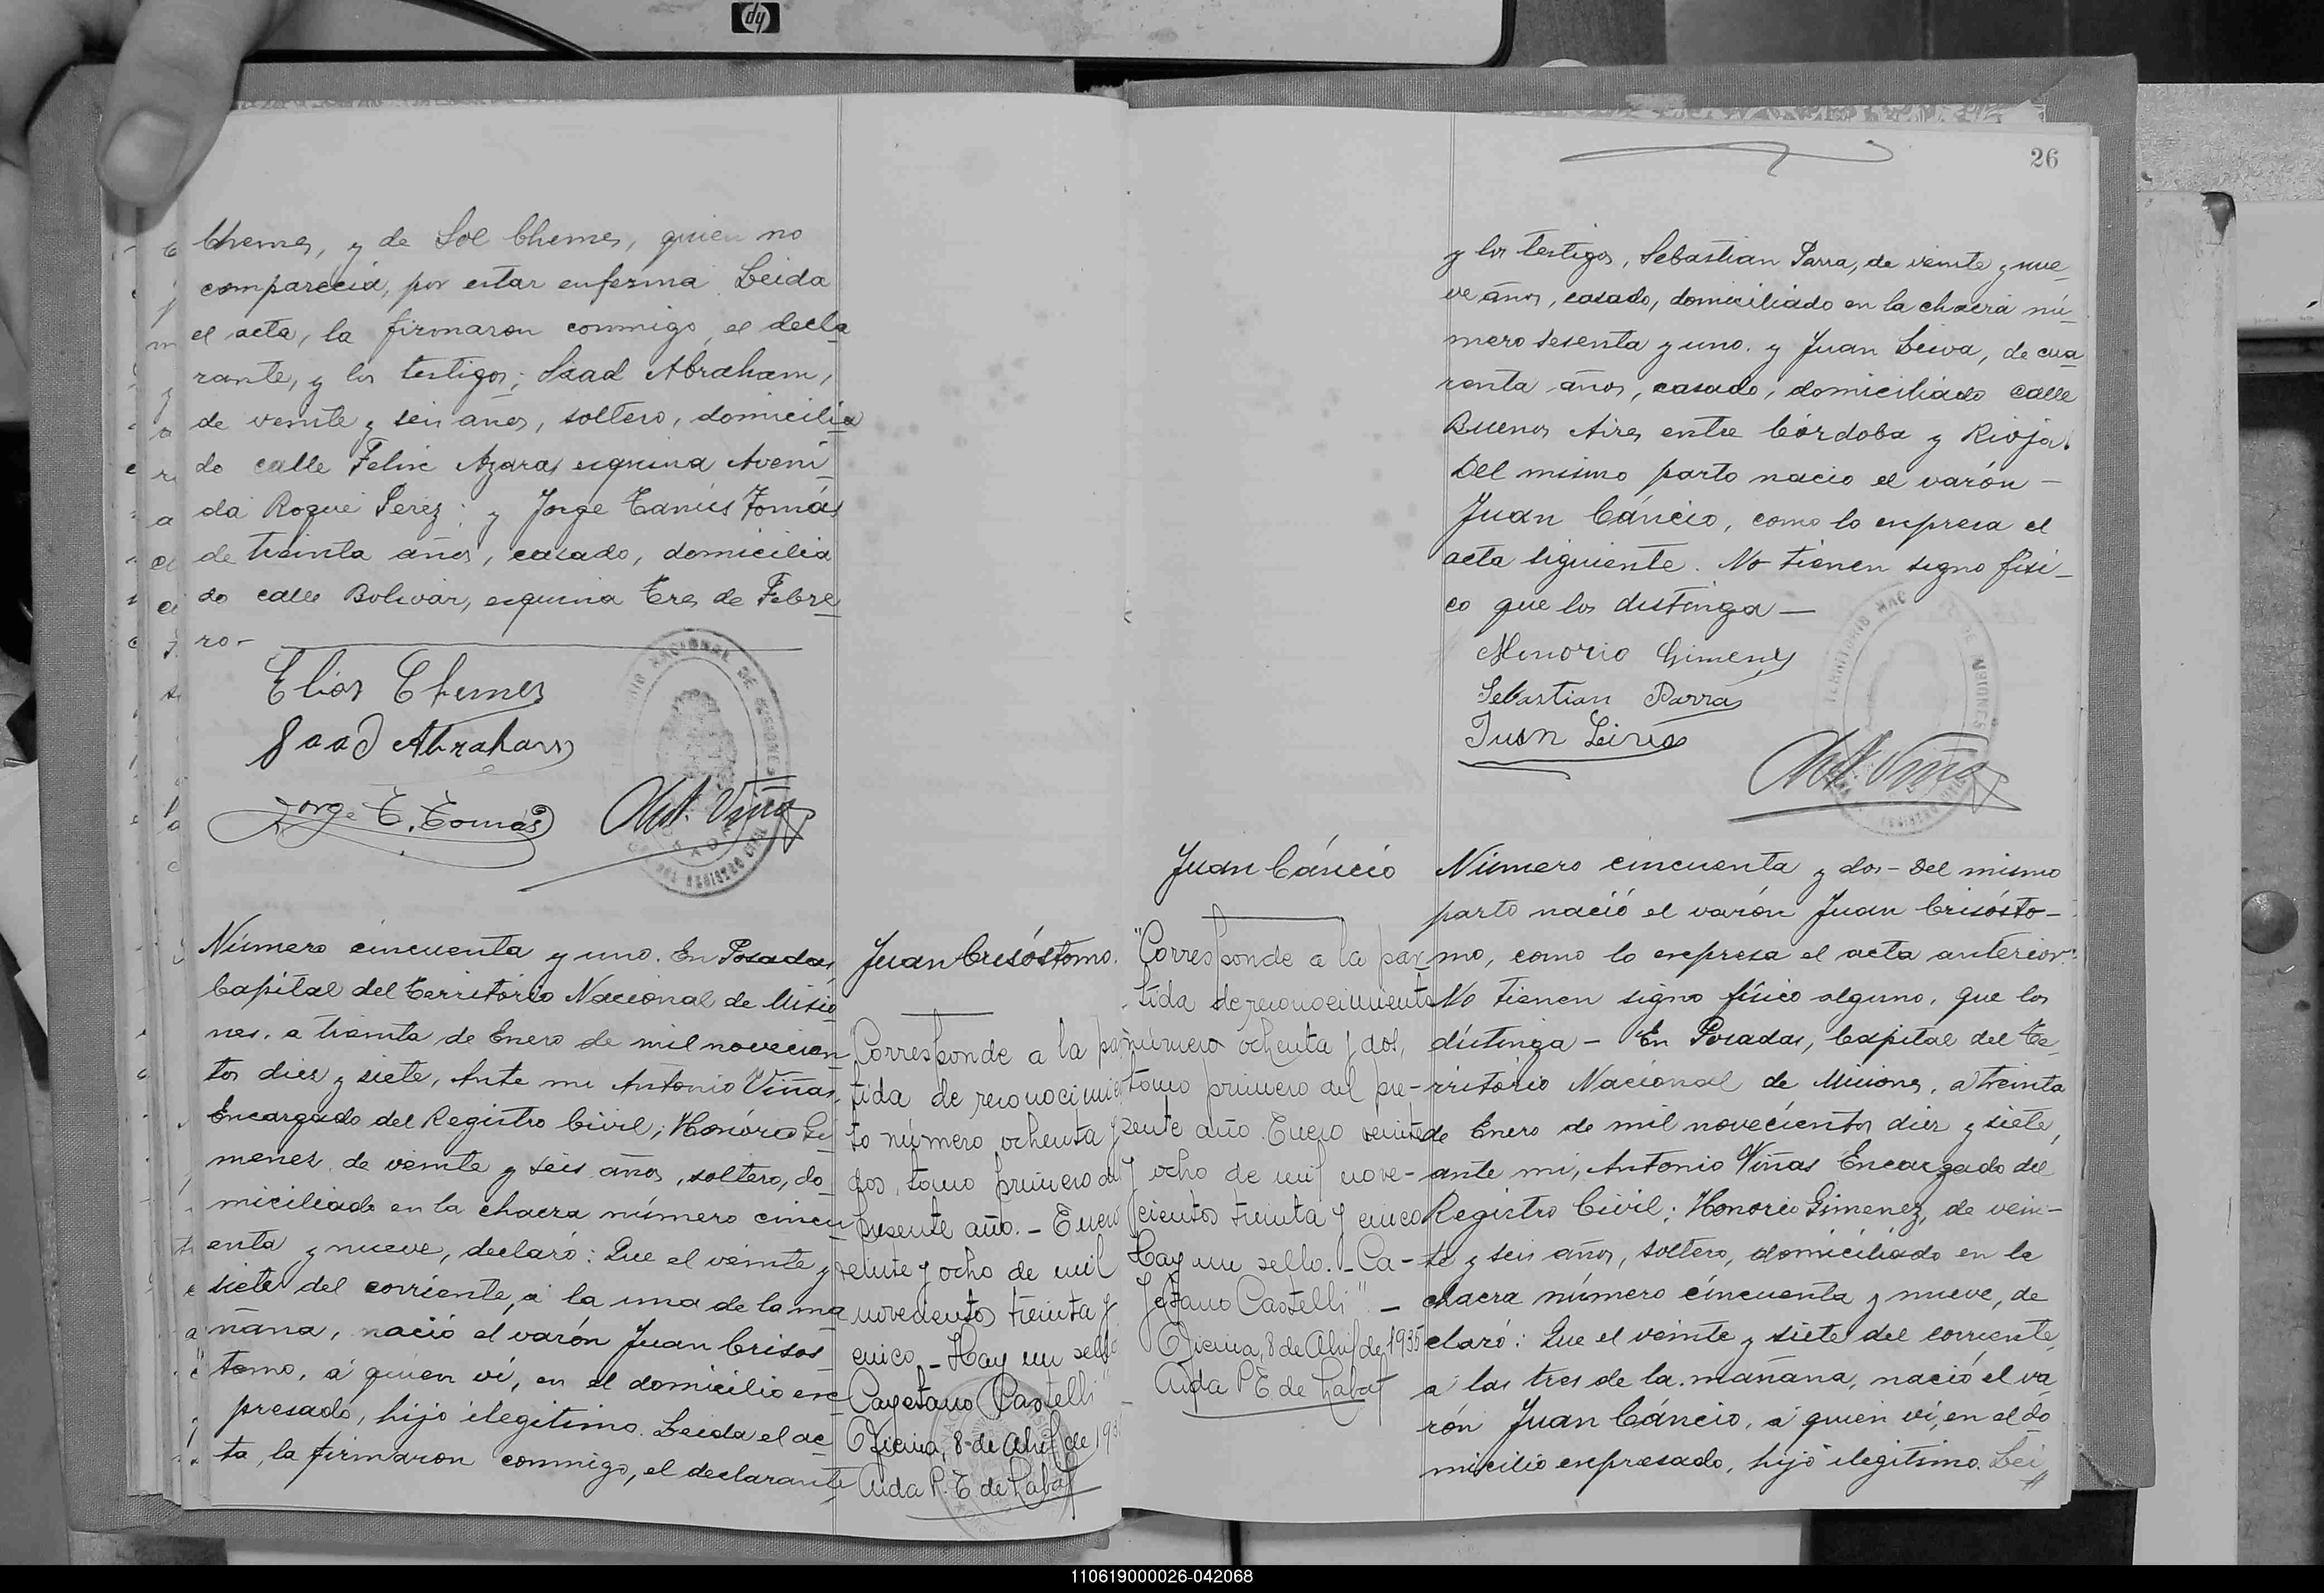 hp
Chemes, y de Sol Chemes, quien no
compareció, por estar enferma. Leida
el acta, la firmaron conmigo, el decla
rante, y los testigos; Saad Abraham,
de veinte y seis años, soltero, domicilia
do calle Felix Azara, esquina Aveni
da Roque Perez; y Jorge Tomás
de treinta años, casado, domicilia
do calle Bolivar, esquina Tres de Febre
ro-
Elias Chemes
Saad Abraham
Jorge T. Tomás
Ant. Viñas
Número cincuenta y uno. En Posadas,
Capital del Territorio Nacional de Misio
nes, a treinta de Enero de mil novecien
tos diez y siete, Ante mi Antonio Viñas,
Encargado del Registro Civil; Honório Gi
menez, de veinte y seis años, soltero, do
miciliado en la chacra número cincu
enta y nueve, declaró: Que el veinte y
siete del corriente, a la una de la ma
ñana, nació el varón Juan Crisós
tomo, a quien vi, en el domicilio ex
presado, hijo ilegitimo. Leida el ac
ta, la firmaron conmigo, el declarante
Juan Crisóstomo.
"Corresponde a la par
tida de reconocimien
to número ochenta y
dos, tomo primero del
presente año. - Enero
veinte y ocho de mil
novecientos treinta y
cinco. - Hay un sello
Cayetano Castelli"
Oficina, 8 de Abril de 193
Aida P. T. de Labat
26
y los testigos, Sebastian Parra, de veinte y nue
ve años, casado, domiciliado en la chacra nú
mero sesenta y uno. y Juan Leiva, de cua
renta años, casado, domiciliado calle
Buenos Aires entre Córdoba y Rioja.
Del mismo parto nacio el varón -
Juan Cáncio, como lo expresa el
acta siguiente. No tienen signo fisi
co que los distinga -
Honorio Gimenez
Sebastian Parra
Juan Leiva
Ant. Viñas
Juan Cáncio
"Corresponde a la par
tida de reconocimiento
número ochenta y dos,
tomo primero del pre-
sente año. Enero veinte
y ocho de mil nove-
cientos treinta y cinco
Hay un sello. - Ca-
yetano Castelli" -
Oficina, 8 de Abril de 1935
Aida P. T. de Labat
Número cincuenta y dos - Del mismo
parto nació el varón Juan Crisósto-
mo, como lo expresa el acta anterior.
No tienen signo físico alguno, que los
distinga - En Posadas, Capital del Te
rritorio Nacional de Misiones, a treinta
de Enero de mil novecientos diez y siete,
ante mi, Antonio Viñas Encargado del
Registro Civil; Honorio Gimenez, de vein-
te y seis años, soltero, domiciliado en la
chacra número cincuenta y nueve, de
claró: Que el veinte y siete del corriente,
a las tres de la mañana, nació el va
rón Juan Cáncio, a quien vi, en el do
micilio expresado, hijo ilegitimo. Lei
110619000026-042068